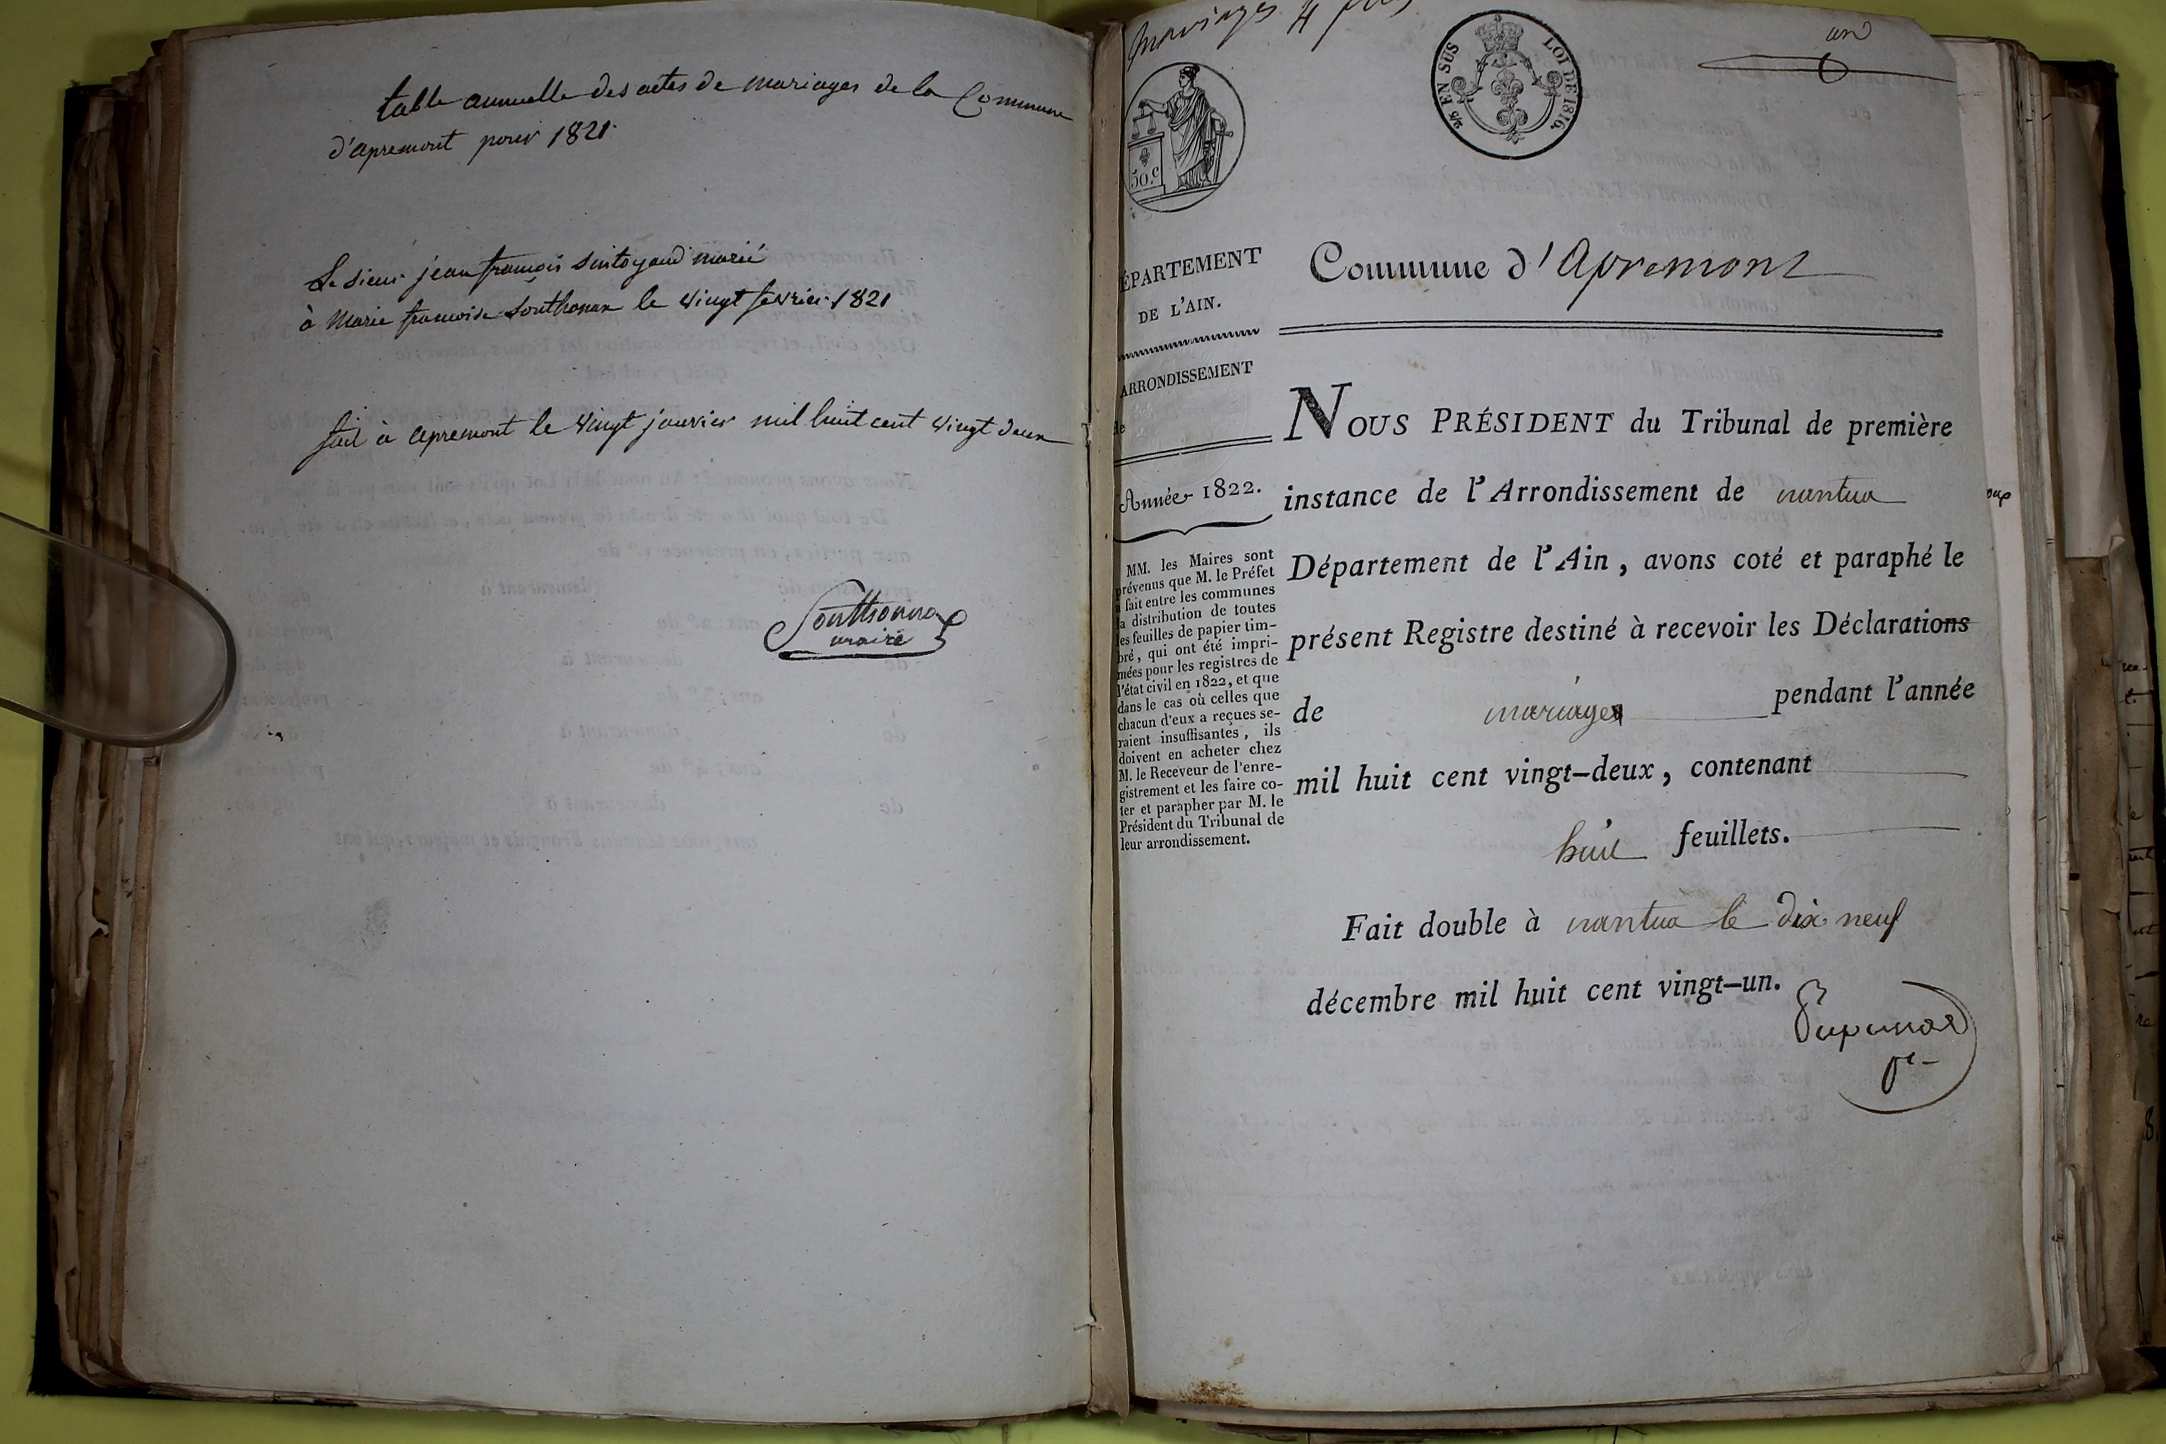 table annuelle des actes de mariages de la Commune
d'apremont pour 1821.
Le sieur jean françois marié
à Marie francoise Southonax le vingt fevrier 1821
fait à apremont le vingt janvier mil huit cent vingt deux
Southonna
maire
mariages 4
50.c
5/6 EN SUS LOI DE 1816.
un
DÉPARTEMENT
DE L'AIN.
ARRONDISSEMENT
de
Année 1822.
MM. les Maires sont
prévenus que M. le Préfet
a fait entre les communes
la distribution de toutes
les feuilles de papier tim-
bré, qui ont été impri-
mées pour les registres de
l'état civil en 1822, et que
dans le cas où celles que
chacun d'eux a reçues se-
raient insuffisantes, ils
doivent en acheter chez
M. le Receveur de l'enre-
gistrement et les faire co-
ter et parapher par M. le
Président du Tribunal de
leur arrondissement.
Commune d'Apremont
NOUS PRÉSIDENT du Tribunal de première
instance de l'Arrondissement de nantua
Département de l'Ain, avons coté et paraphé le
présent Registre destiné à recevoir les Déclarations
de mariages pendant l'année
mil huit cent vingt-deux, contenant
huit feuillets.
Fait double à nantua le dix neuf
décembre mil huit cent vingt-un.